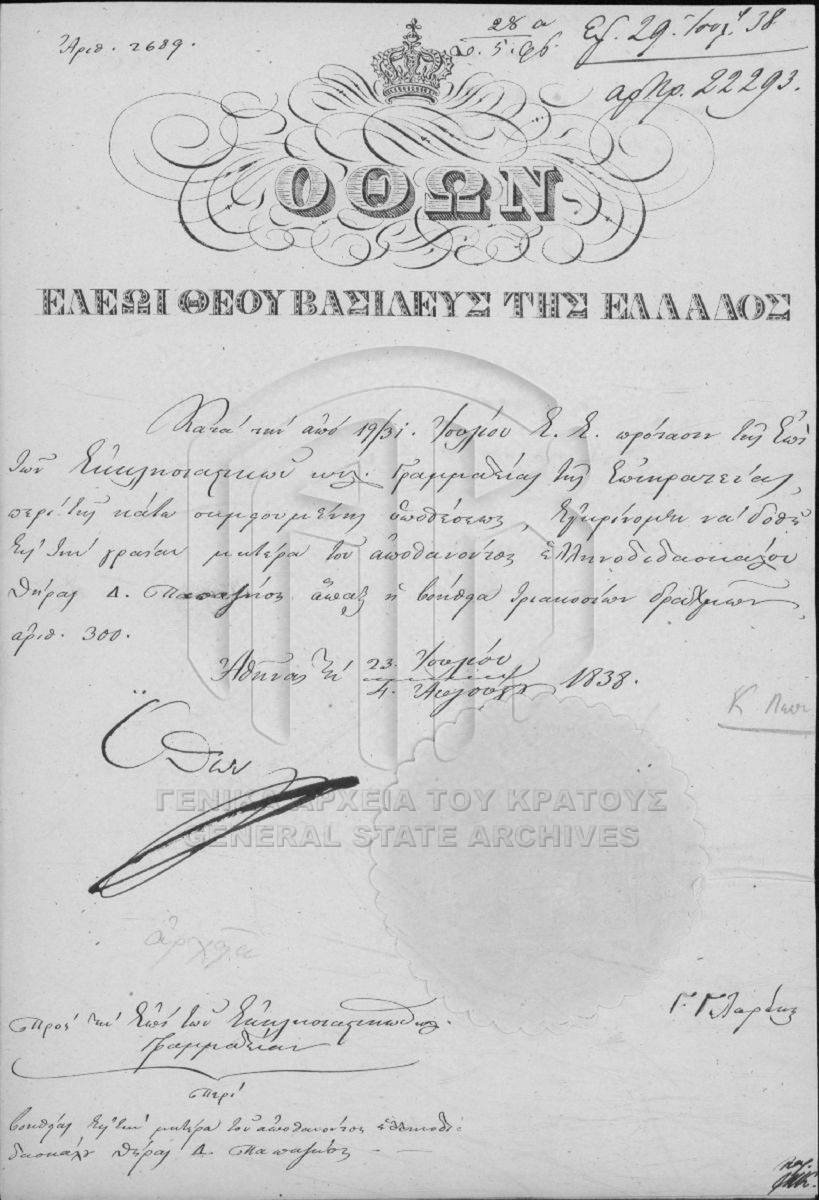 Ἀριθ. 2689.
28 α
Εἰσ. 29. Ἰουλ. 38
αρ Πρ. 22293.
ΟΘΩΝ
ΕΛΕΩΙ ΘΕΟΥ ΒΑΣΙΛΕΥΣ ΤΗΣ ΕΛΛΑΔΟΣ
Κατὰ τὴν ἀπὸ 19/31. Ἰουλίου ἐ. ἔ. πρότασιν τῆς Ἐπὶ
τῶν Ἐκκλησιαστικῶν κλ. Γραμματείας τῆς Ἐπικρατείας,
περὶ τῆς κάτω σημειουμένης ὑποθέσεως, ἐγκρίνομεν νὰ δοθῇ
εἰς τὴν γραῖαν μητέρα τοῦ ἀποθανόντος ἑλληνοδιδασκάλου
Θήρας Δ. ἅπαξ ἡ βοήθεια τριακοσίων δραχμῶν,
ἀριθ. 300.
Ἀθῆναι τῇ 23. Ἰουλίου
4. Αὐγούστου 1838.
Κ
Ὄθων
ΓΕΝΙΚΑ ΑΡΧΕΙΑ ΤΟΥ ΚΡΑΤΟΥΣ
GENERAL STATE ARCHIVES
ἀρχεῖα
Γ. Γλαράκης
Πρὸς τὴν Ἐπὶ τῶν Ἐκκλησιαστικῶν κλ.
Γραμματείαν
Περὶ
βοηθείας εἰς τὴν μητέρα τοῦ ἀποθανόντος ἑλληνοδι-
δασκάλου Θήρας Δ.